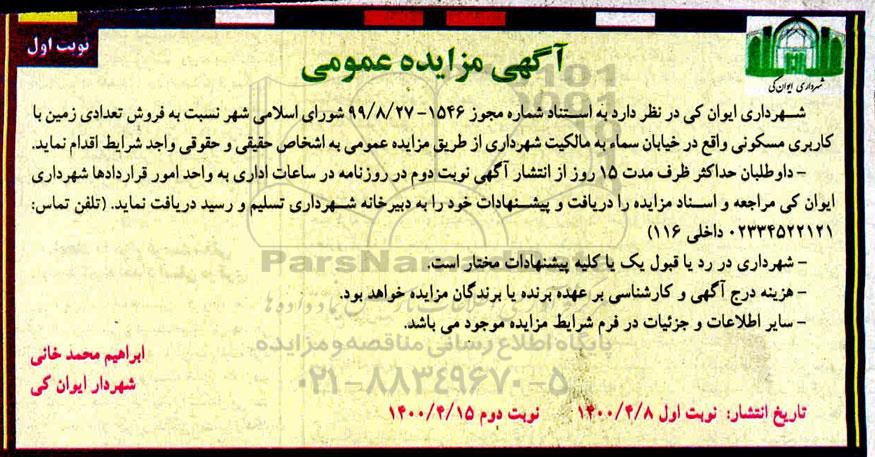 نوبت اول
شهرداری ایوان کی
آگهی مزایده عمومی
شهرداری ایوان کی در نظر دارد به استناد شماره مجوز ۱۵۴۶- ۹۹/۸/۲۷ شورای اسلامی شهر نسبت به فروش تعدادی زمین با
کاربری مسکونی واقع در خیابان سماء به مالکیت شهرداری از طریق مزایده عمومی به اشخاص حقیقی و حقوقی واجد شرایط اقدام نماید.
- داوطلبان حداکثر ظرف مدت ۱۵ روز از انتشار آگهی نوبت دوم در روزنامه در ساعات اداری به واحد امور قراردادها شهرداری
ایوان کی مراجعه و اسناد مزایده را دریافت و پیشنهادات خود را به دبیرخانه شهرداری تسلیم و رسید دریافت نماید. (تلفن تماس:
۰۲۳۳۴۵۲۲۱۲۱ داخلی ۱۱۶)
- شهرداری در رد یا قبول یک یا کلیه پیشنهادات مختار است.
- هزینه درج آگهی و کارشناسی بر عهده برنده یا برندگان مزایده خواهد بود.
- سایر اطلاعات و جزئیات در فرم شرایط مزایده موجود می باشد.
ابراهیم محمد خانی
شهردار ایوان کی
تاریخ انتشار: نوبت اول ۱۴۰۰/۴/۸ نوبت دوم ۱۴۰۰/۴/۱۵
پایگاه اطلاع رسانی مناقصه و مزایده
۰۲۱-۸۸۳۴۹۶۷۰-۵